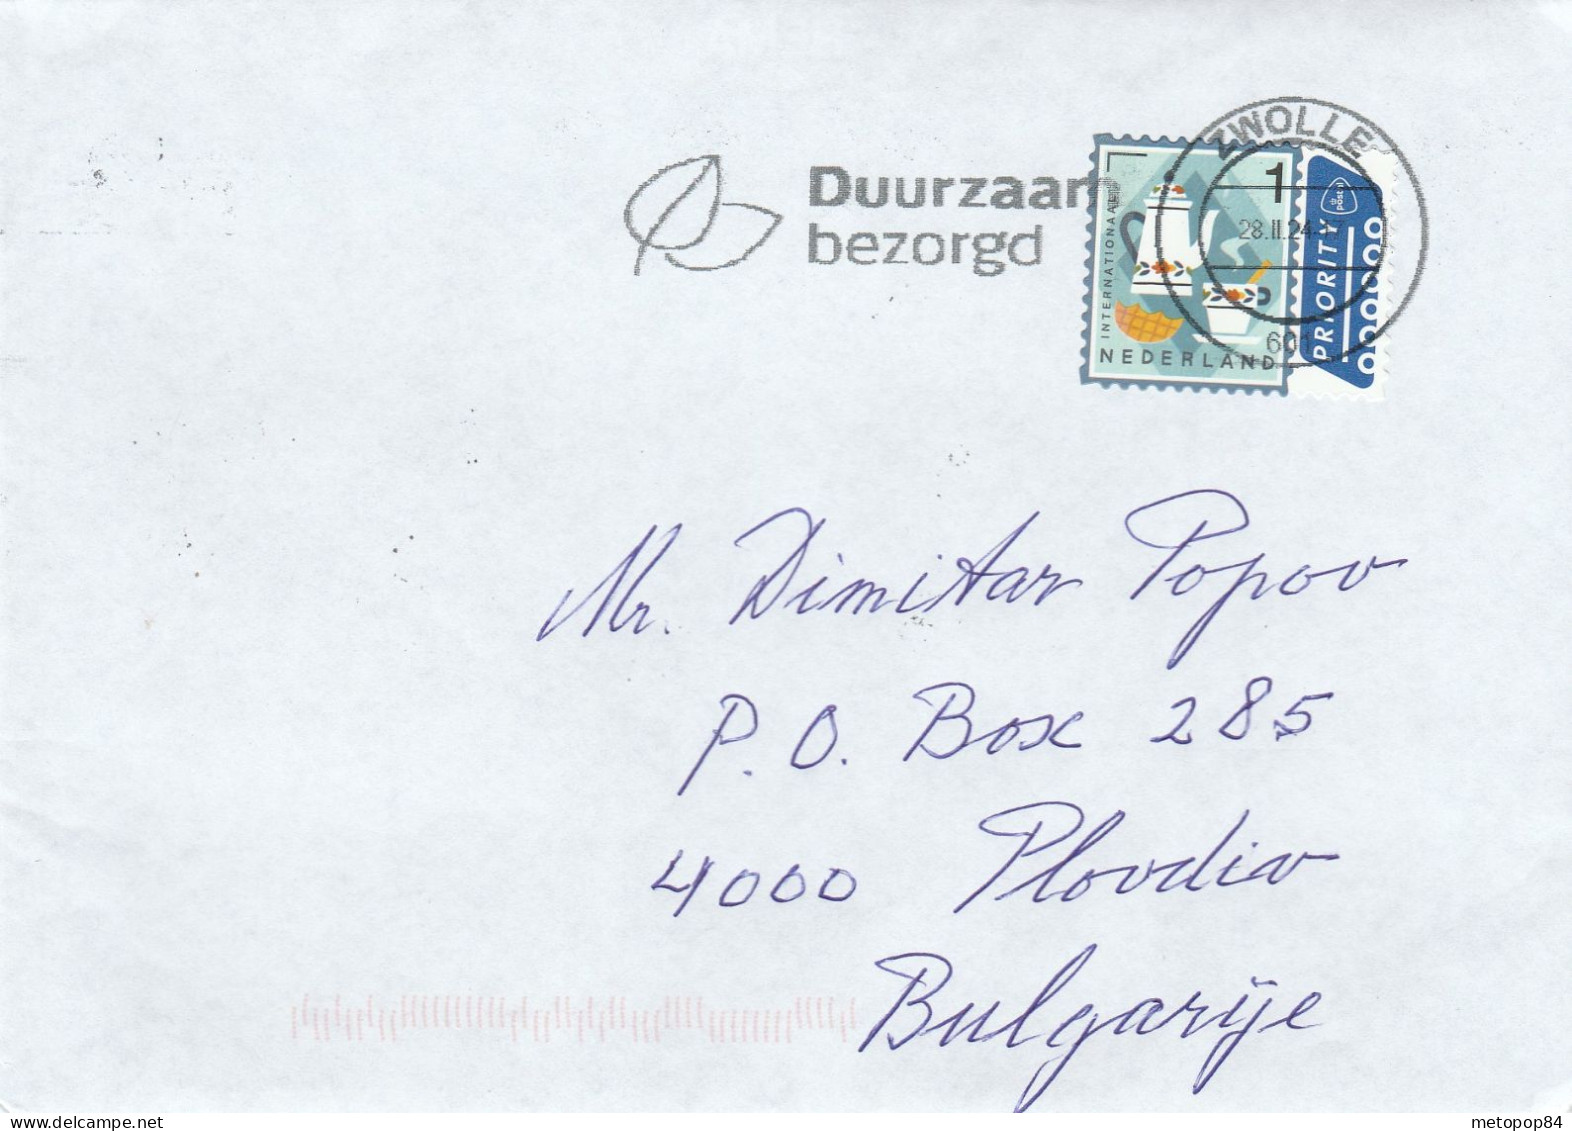 ZWOLLE
Duurzaam
bezorgd
1
INTERNATIONAAL
NEDERLAND
postnl
PRIORITY
28.II.24-17
601
Mr. Dimitar Popov
P. O. Box 285
4000 Plovdiv
Bulgarije
delcampe.net
metopop84